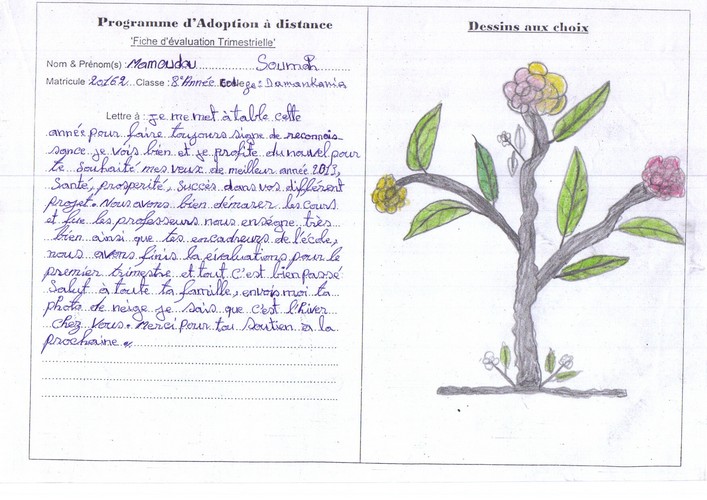 Programme d'Adoption à distance
'Fiche d'évaluation Trimestrielle'
Nom & Prénom(s) : Mamoudou Soumah
Matricule 20162 Classe : 8e Année College : Damankania
Lettre à : je me met à table cette
année pour faire toujours signe de reconnais
sance je vois bien et je profite du nouvel pour
te Souhaité mes veux de meilleur année 2013,
Santé, prosperité, Succès dans vos différent
projet. Nous avons bien démarer les cours
et les professeurs nous enségne très
bien ainsi que tes encadreurs de l'école,
nous avons finis la évaluations pour le
premier trimestre et tout c'est bien passé
Salut à toute ta famille, envois moi ta
photo de neige je sais que c'est l'hiver
chez vous. Merci pour tou soutien à la
prochaine.
Dessins aux choix